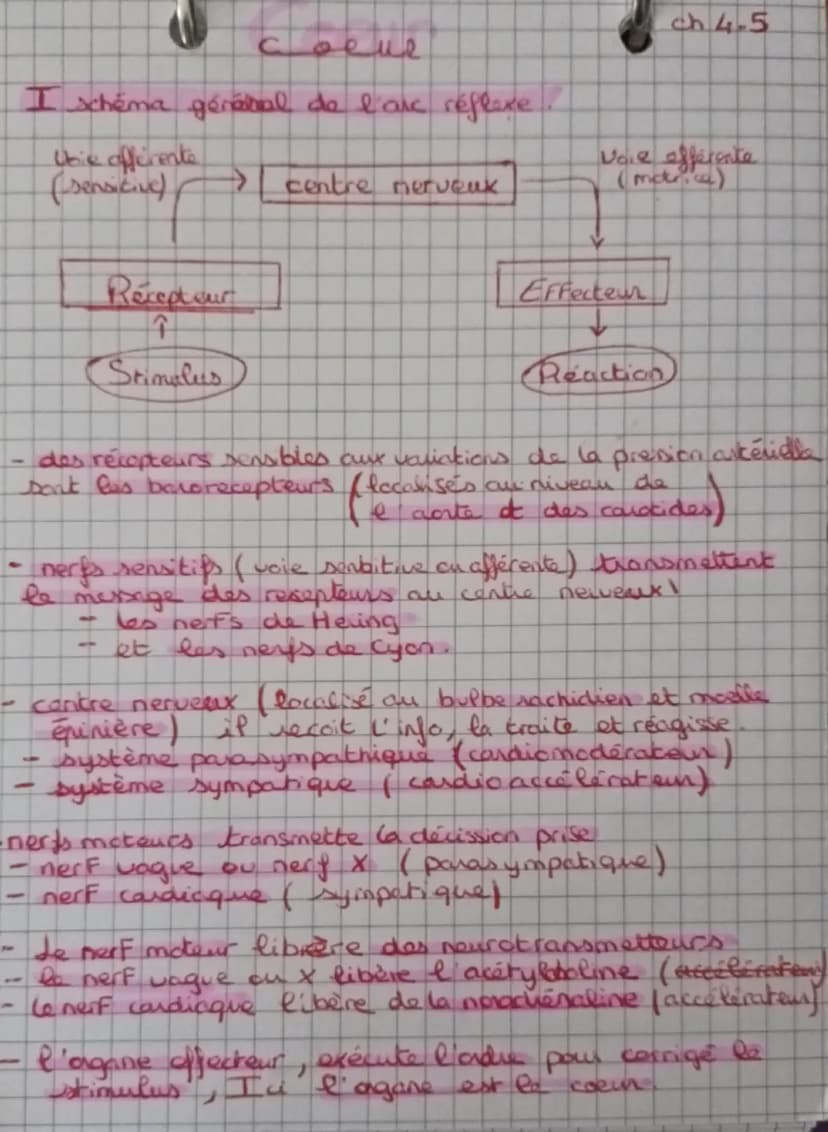 ch 4.5
Coeur
I schéma général de l'arc réflexe.
Voie afférente
(sensitive)
centre nerveux
Voie efférente
(motrice)
Récepteur
Effecteur
Stimulus
Réaction
- des récepteurs sensibles aux variations de la presion artérielle
sont les barorecepteurs (localisés au niveau de
l'aorte et des carotides)
- nerfs sensitifs (voie senbitive ou afférente) transmettent
le message des recepteurs au centre nerveux
- les nerfs de Hering
- et les nerfs de Cyon.
- centre nerveux (localisé au bulbe rachidien et moelle
épinière) il reçoit l'info, la traite et réagisse.
- système parasympathique (cardiomodérateur)
- système sympatique (cardioaccélérateur)
nerfs moteurs transmette la décission prise
- nerf vague ou nerf X (parasympatique)
- nerf cardiacque (sympatique)
- Le nerf moteur libère des neurotransmetteurs
- le nerf vague ou X libère l'acétylcholine (accélérateur)
- Le nerf cardiacque libère de la noradrénaline (accélérateur)
- l'organe effecteur, exécute l'ordre pour corrigé le
stimulus, Ici l'organe est le coeur.